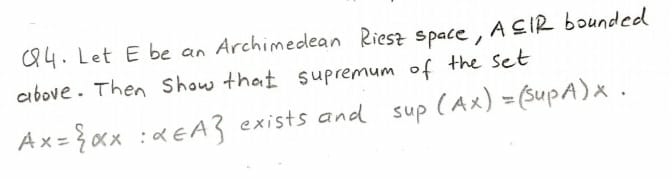 Q4. Let E be an Archimedean Riesz space, A ⊆ IR bounded
above. Then Show that supremum of the set
Ax = {αx : α ∈ A} exists and sup (Ax) = (supA) x .